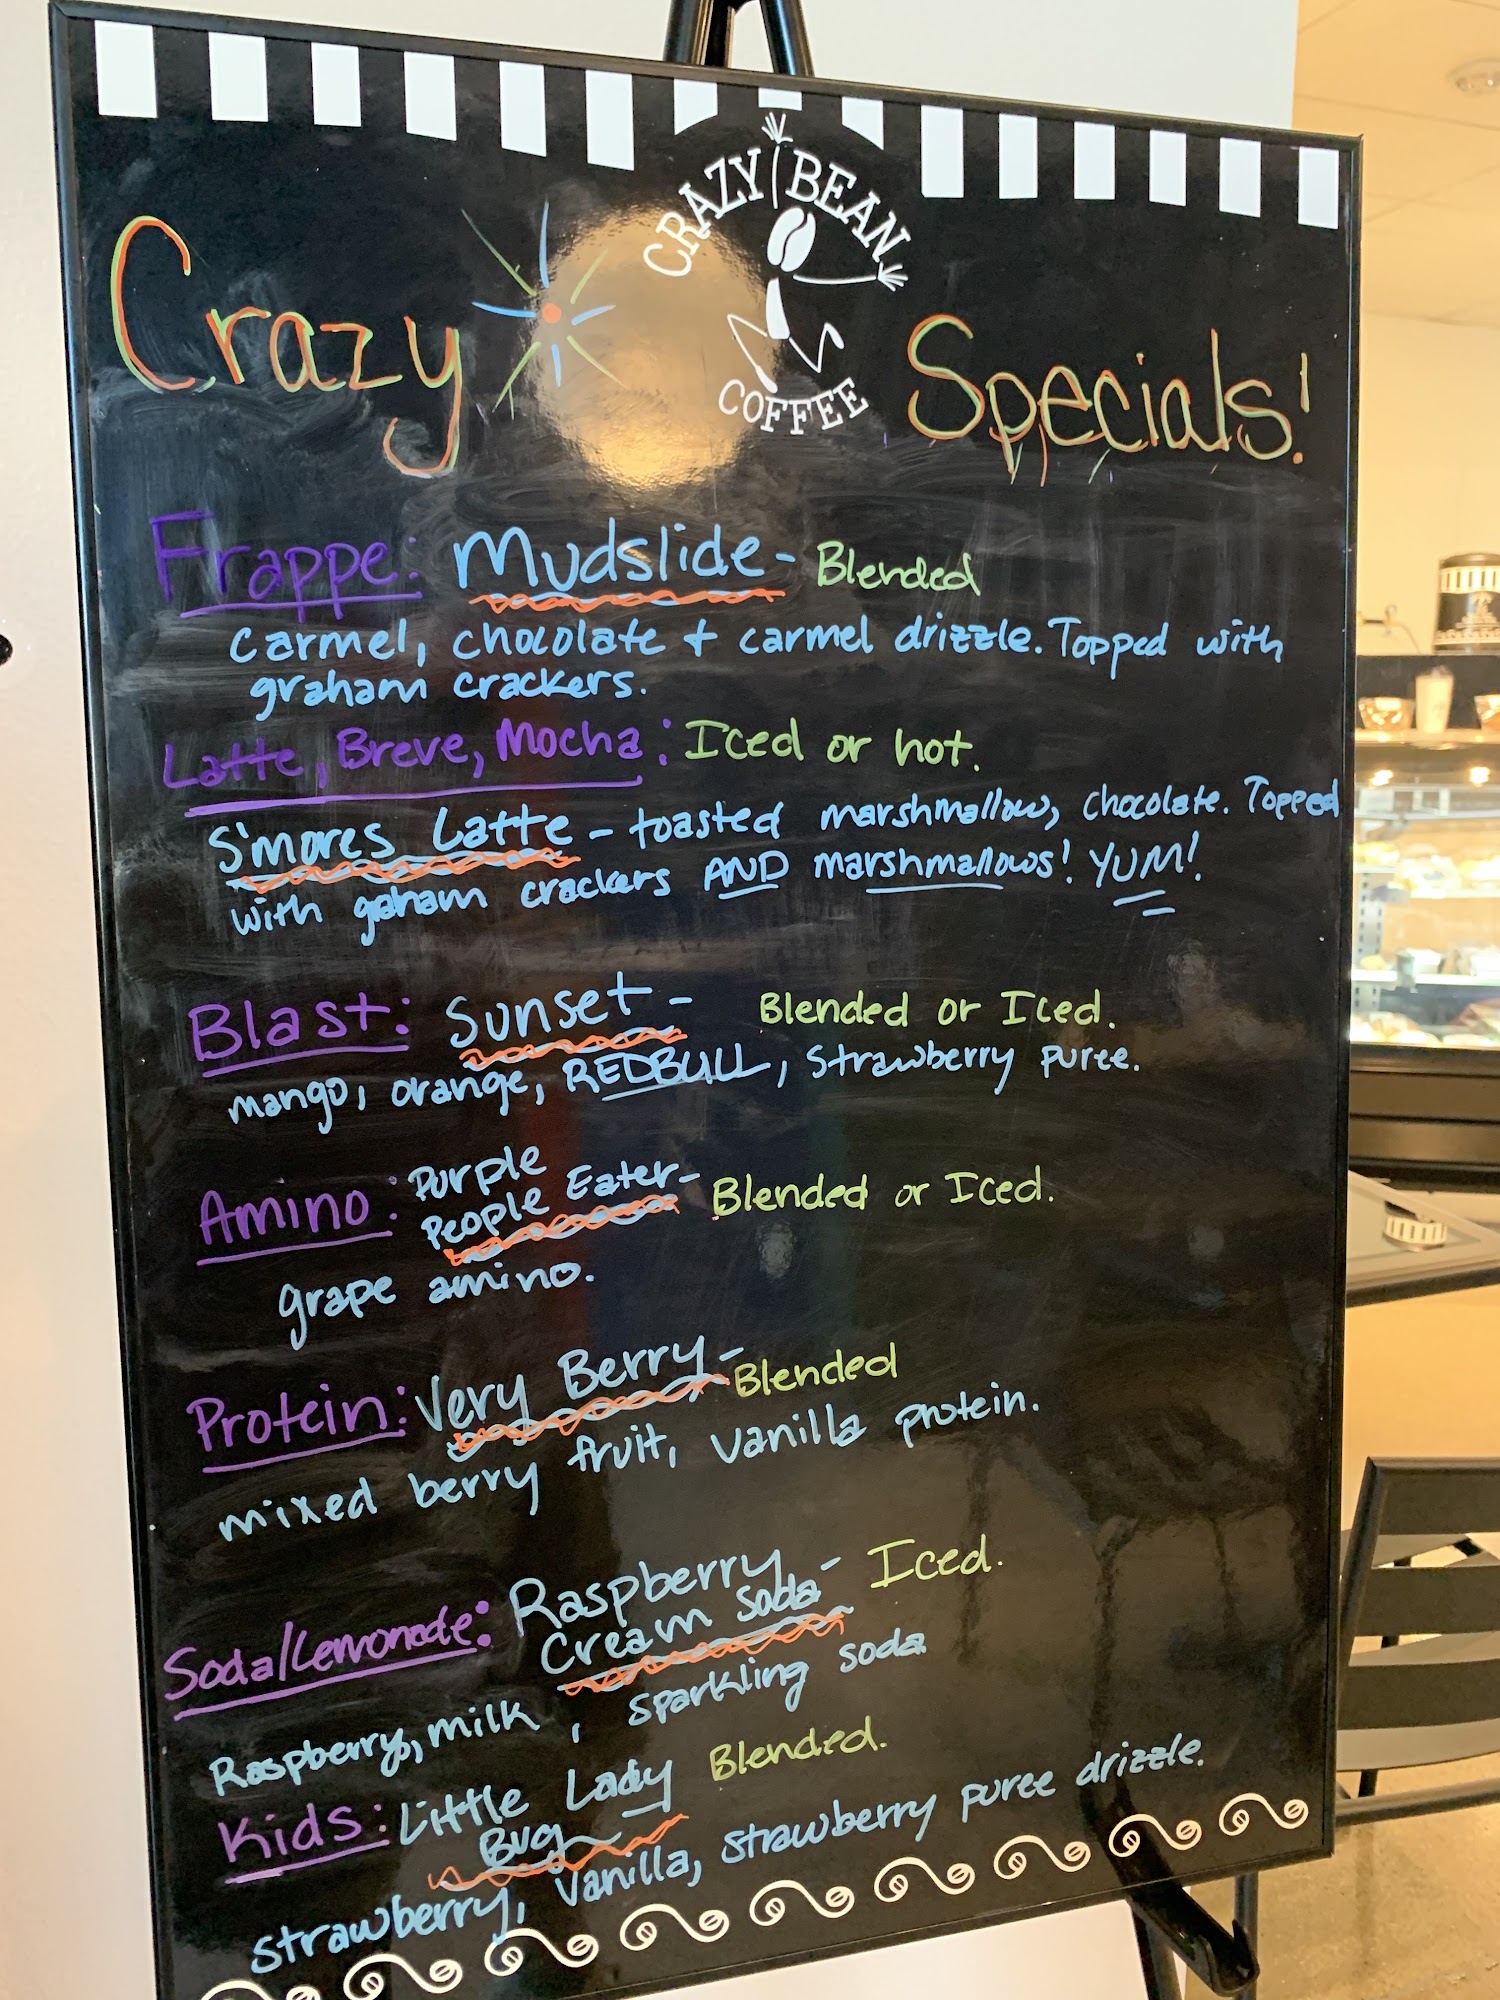 CRAZY BEAN
COFFEE
Crazy Specials!
Frappe: Mudslide - Blended
Carmel, chocolate + carmel drizzle. Topped with
graham crackers.
Latte, Breve, Mocha: Iced or hot.
S'mores Latte - toasted marshmallow, chocolate. Topped
with graham crackers AND marshmallows! YUM!
Blast: Sunset - Blended or Iced.
mango, orange, REDBULL, strawberry puree.
Amino: Purple
People Eater - Blended or Iced.
grape amino.
Protein: Very Berry - Blended
mixed berry fruit, vanilla protein.
Soda/Lemonade: Raspberry
Cream Soda - Iced.
Raspberry, milk , sparkling soda
Kids: Little Lady
Bug Blended.
strawberry, vanilla, strawberry puree drizzle.